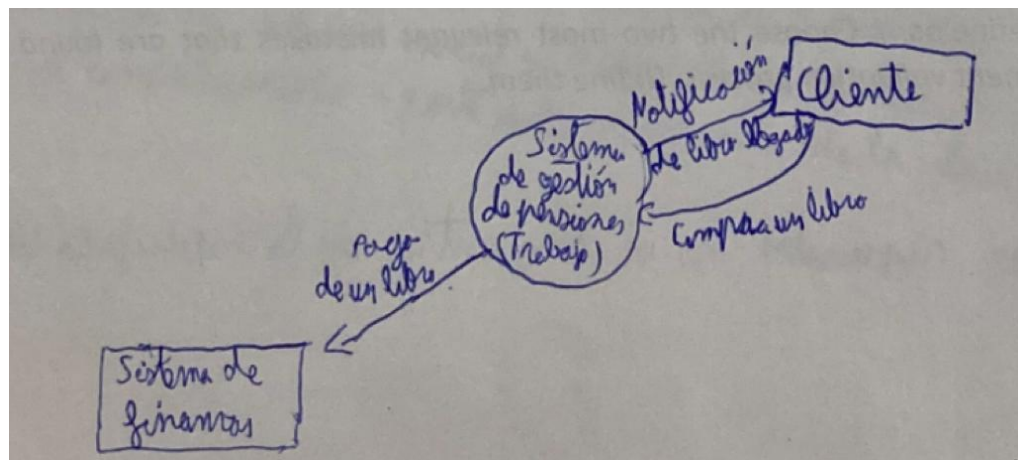 Notificación
de libro llegado
Cliente
Sistema
de gestión
de pensiones
(Trabajo)
Compra un libro
Pago
de un libro
Sistema de
finanzas